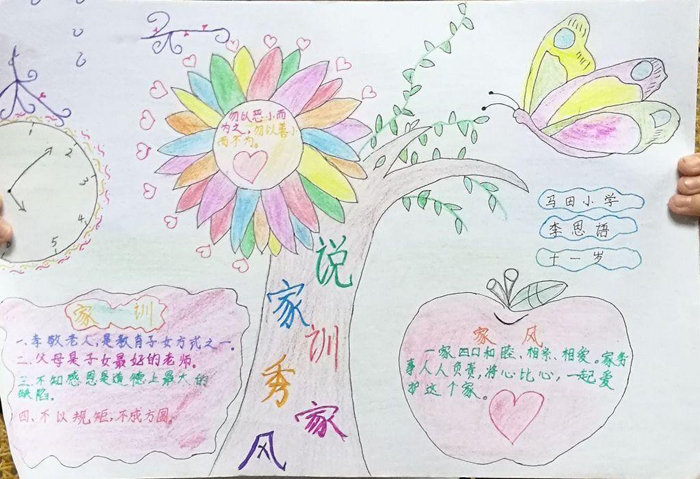 勿以恶小而
为之，勿以善小
而不为。
1
2
3
4
5
马田小学
李思语
十一岁
说家训
秀家风
家训
一、孝敬老人，是教育子女方式之一。
二、父母是子女最好的老师。
三、不知感恩是道德上最大的
缺陷。
四、不以规矩，不成方圆。
家风
一家四口和睦、相亲、相爱。家务
事人人负责，将心比心，一起爱
护这个家。